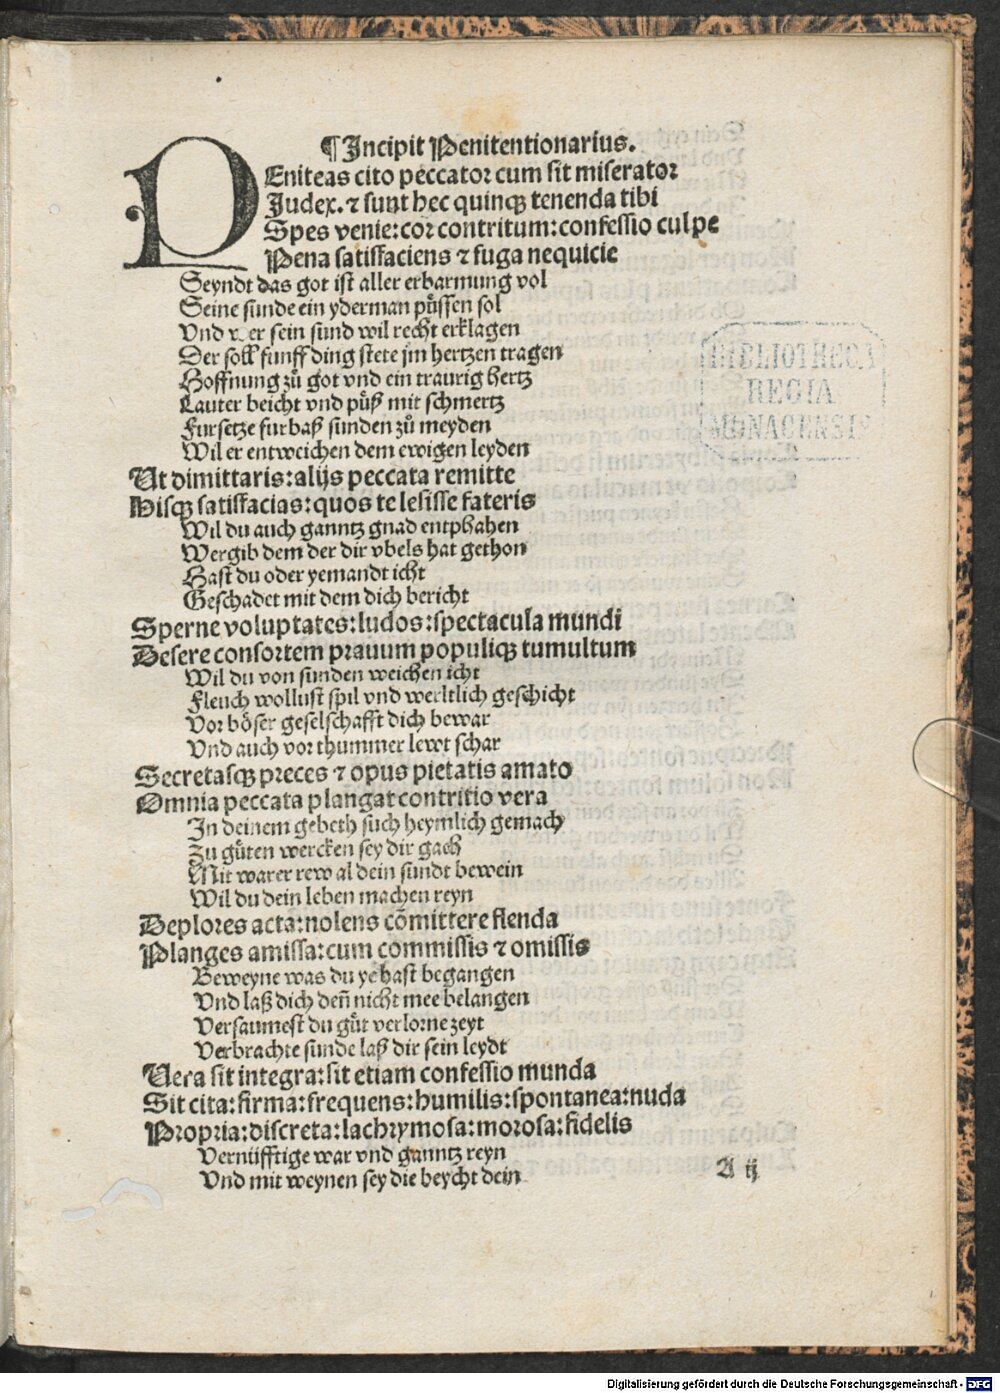 ¶Incipit Penitentionarius.
PEniteas cito peccator cum sit miserator
Judex. ⁊ sunt hec quinqꝫ tenenda tibi
Spes venie: cor contritum: confessio culpe
Pena satisfaciens ⁊ fuga nequicie
Seyndt das got ist aller erbarmung vol
Seine sunde ein yderman pu̓ssen sol
Vnd er sein sund wil recht erklagen
Der soll funff ding stete jm hertzen tragen
Hoffnung zů got vnd ein traurig hertz
Lauter beicht vnd půß mit schmertz
Fursetze furbaß sunden zů meyden
Wil er entweichen dem ewigen leyden
Ut dimittaris: alijs peccata remitte
Hisqꝫ satisfacias: quos te lesisse fateris
Wil du auch ganntz gnad entphahen
Vergib dem der dir vbels hat gethon
Hast du oder yemandt icht
Geschadet mit dem dich bericht
Sperne voluptates: ludos: spectacula mundi
Desere consortem prauum populiqꝫ tumultum
Wil du von sunden weichen icht
Fleuch wollust spil vnd werltlich geschicht
Vor böser geselschafft dich bewar
Vnd auch vor thummer lewt schar
Secretasqꝫ preces ⁊ opus pietatis amato
Omnia peccata plangat contritio vera
In deinem gebeth such heymlich gemach
Zu gůten wercken sey dir gach
Mit warer rew al dein sundt bewein
Wil du dein leben machen reyn
Deplores acta: nolens cõmittere flenda
Planges amissa: cum commissis ⁊ omissis
Beweyne was du ye hast begangen
Vnd laß dich deñ nicht mee belangen
Versaumest du gůt verlorne zeyt
Verbrachte sunde laß dir sein leydt
Vera sit integra: sit etiam confessio munda
Sit cita: firma: frequens: humilis: spontanea: nuda
Propria: discreta: lachrymosa: morosa: fidelis
Vernüfftige war vnd ganntz reyn
Vnd mit weynen sey die beycht dein
A ij
BIBLIOTHECA
REGIA
MONACENSIS
Digitalisierung gefördert durch die Deutsche Forschungsgemeinschaft - DFG